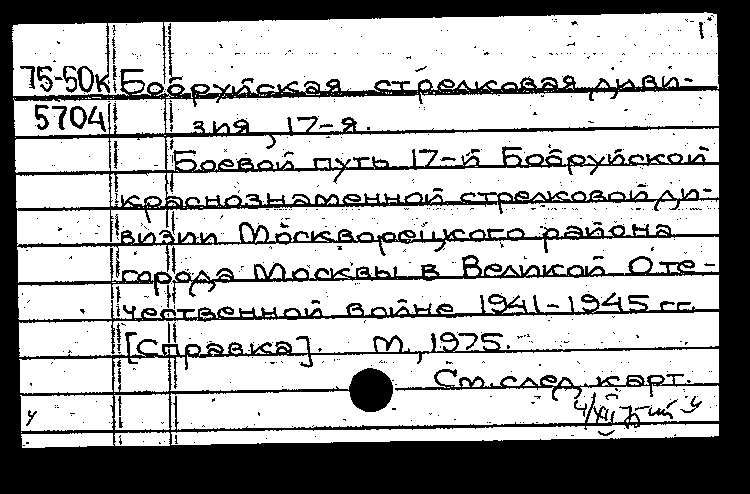 1
75-50к Бобруйская стрелковая диви-
5704 зия, 17-я.
Боевой путь 17-й Бобруйской
краснознаменной стрелковой ди-
визии Москворецкого района
города Москвы в Великой Оте-
чественной войне 1941-1945 гг.
[Справка]. М., 1975.
См. след. карт.